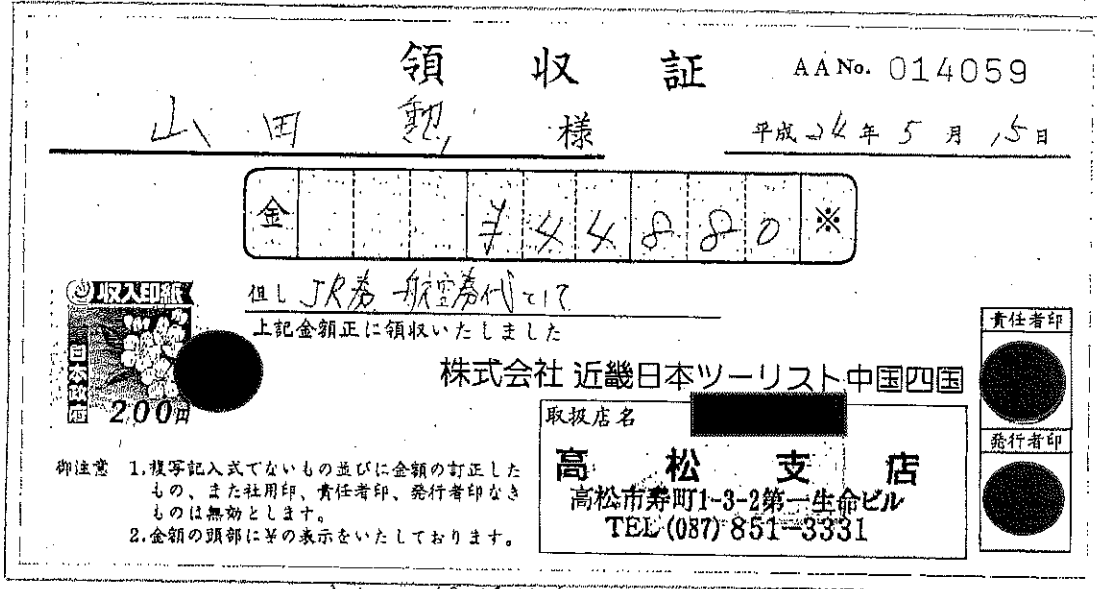 領収証 AA No. 014059
山田 勲 様 平成24年5月15日
金 ¥44880 ※
収入印紙
日本政府
200円
但し JR券 航空券代として
上記金額正に領収いたしました
株式会社 近畿日本ツーリスト中国四国
責任者印
取扱店名
発行者印
高松支店
高松市寿町1-3-2第一生命ビル
TEL (087) 851-3331
御注意 1.複写記入式でないもの並びに金額の訂正した
もの、また社用印、責任者印、発行者印なき
ものは無効とします。
2.金額の頭部に¥の表示をいたしております。